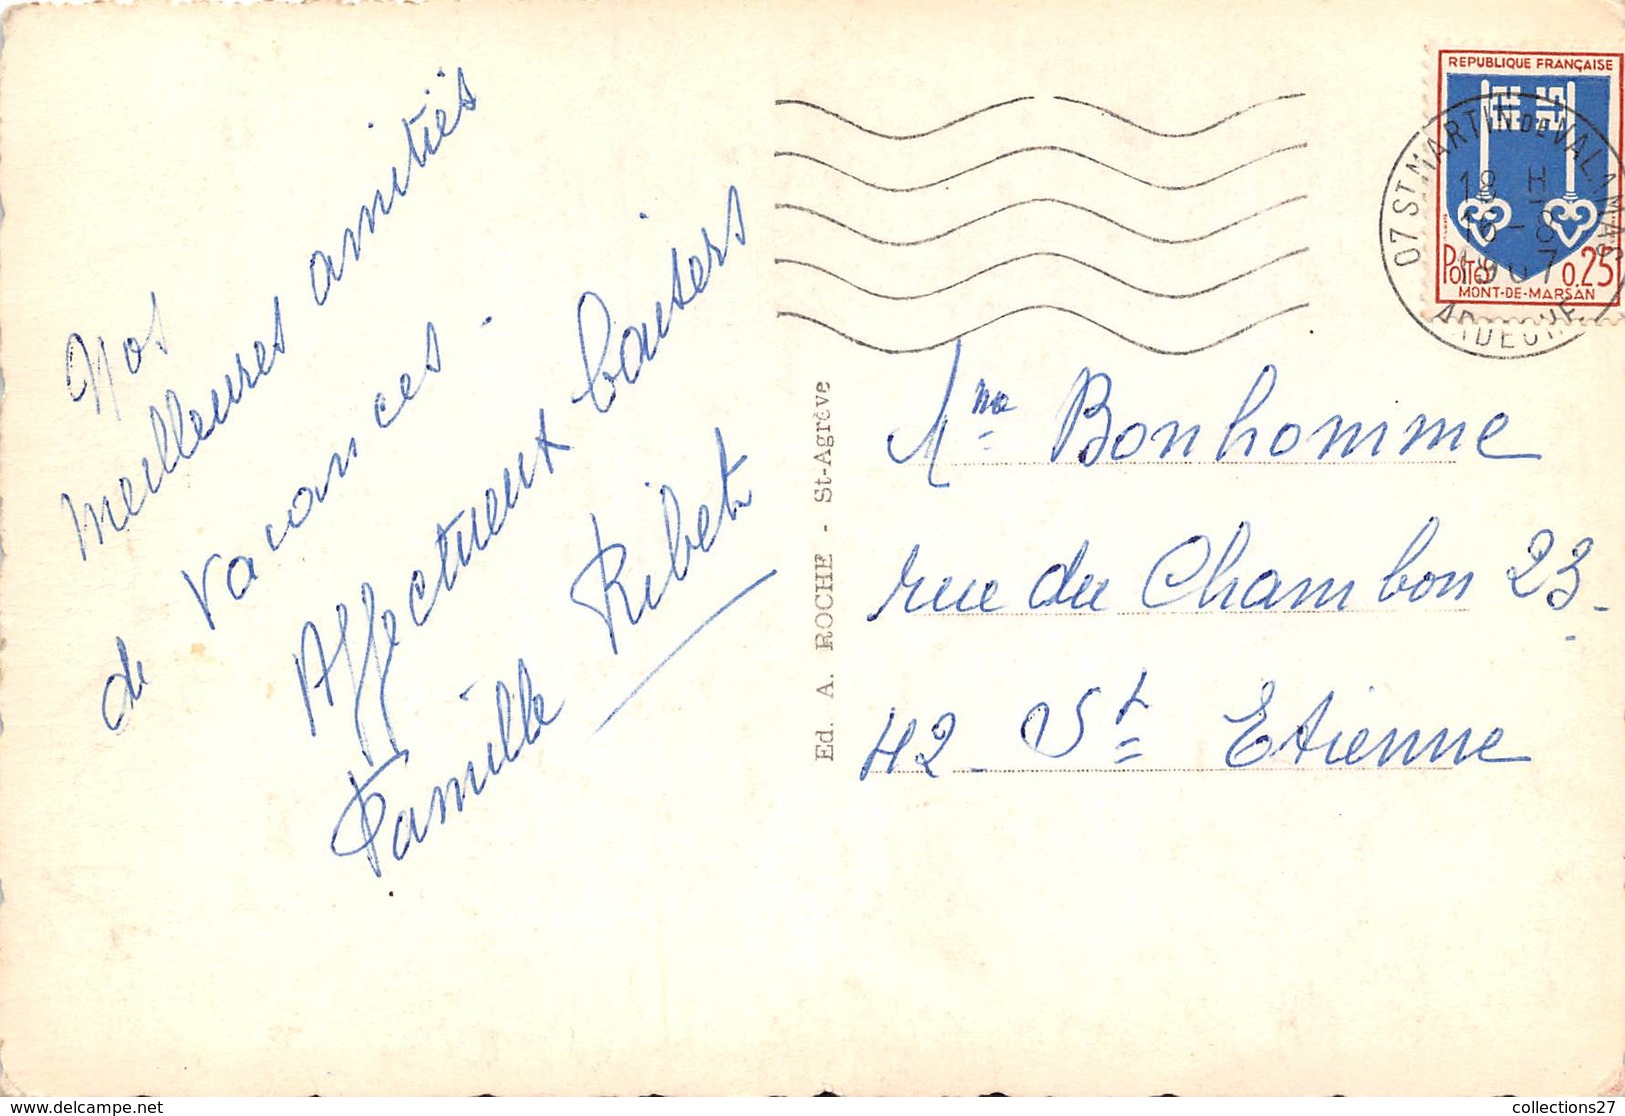 Nos
meilleures amitiés
de vacances.
Affectueux baisers
Famille Ribet
Ed. A. ROCHE - St-Agrève
REPUBLIQUE FRANÇAISE
0.25
MONT-DE-MARSAN
07 ST MARTIN DE VALAMAS
18 H
16-8
1967
ARDECHE
Mme Bonhomme
rue du Chambon 23.
42 St Etienne
delcampe.net
collections27